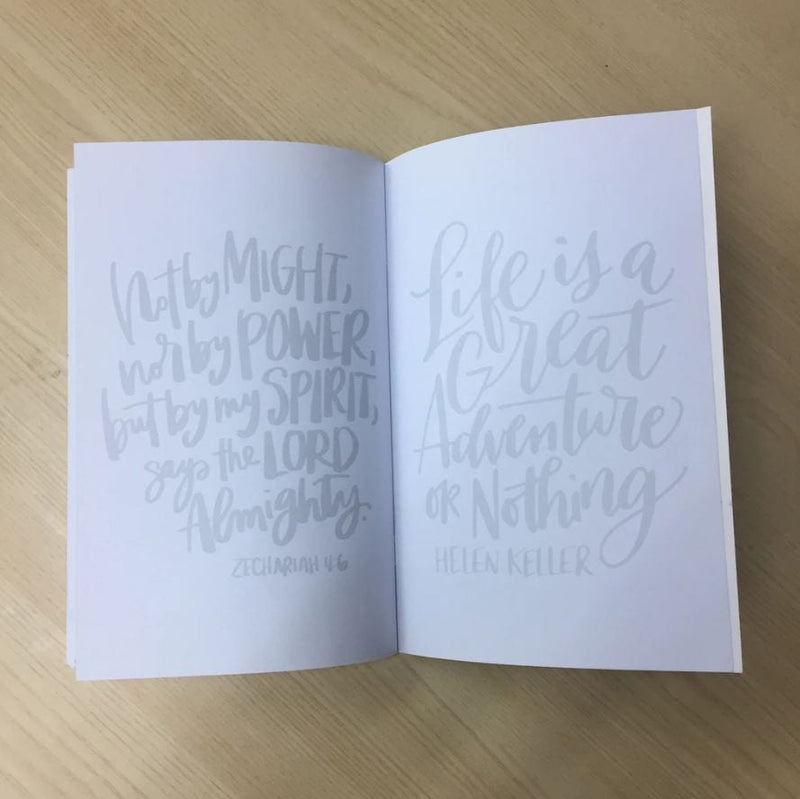 Not by MIGHT,
nor by POWER,
but by my SPIRIT,
says the LORD
Almighty.
ZECHARIAH 4:6
Life is a
Great
Adventure
OR Nothing
HELEN KELLER